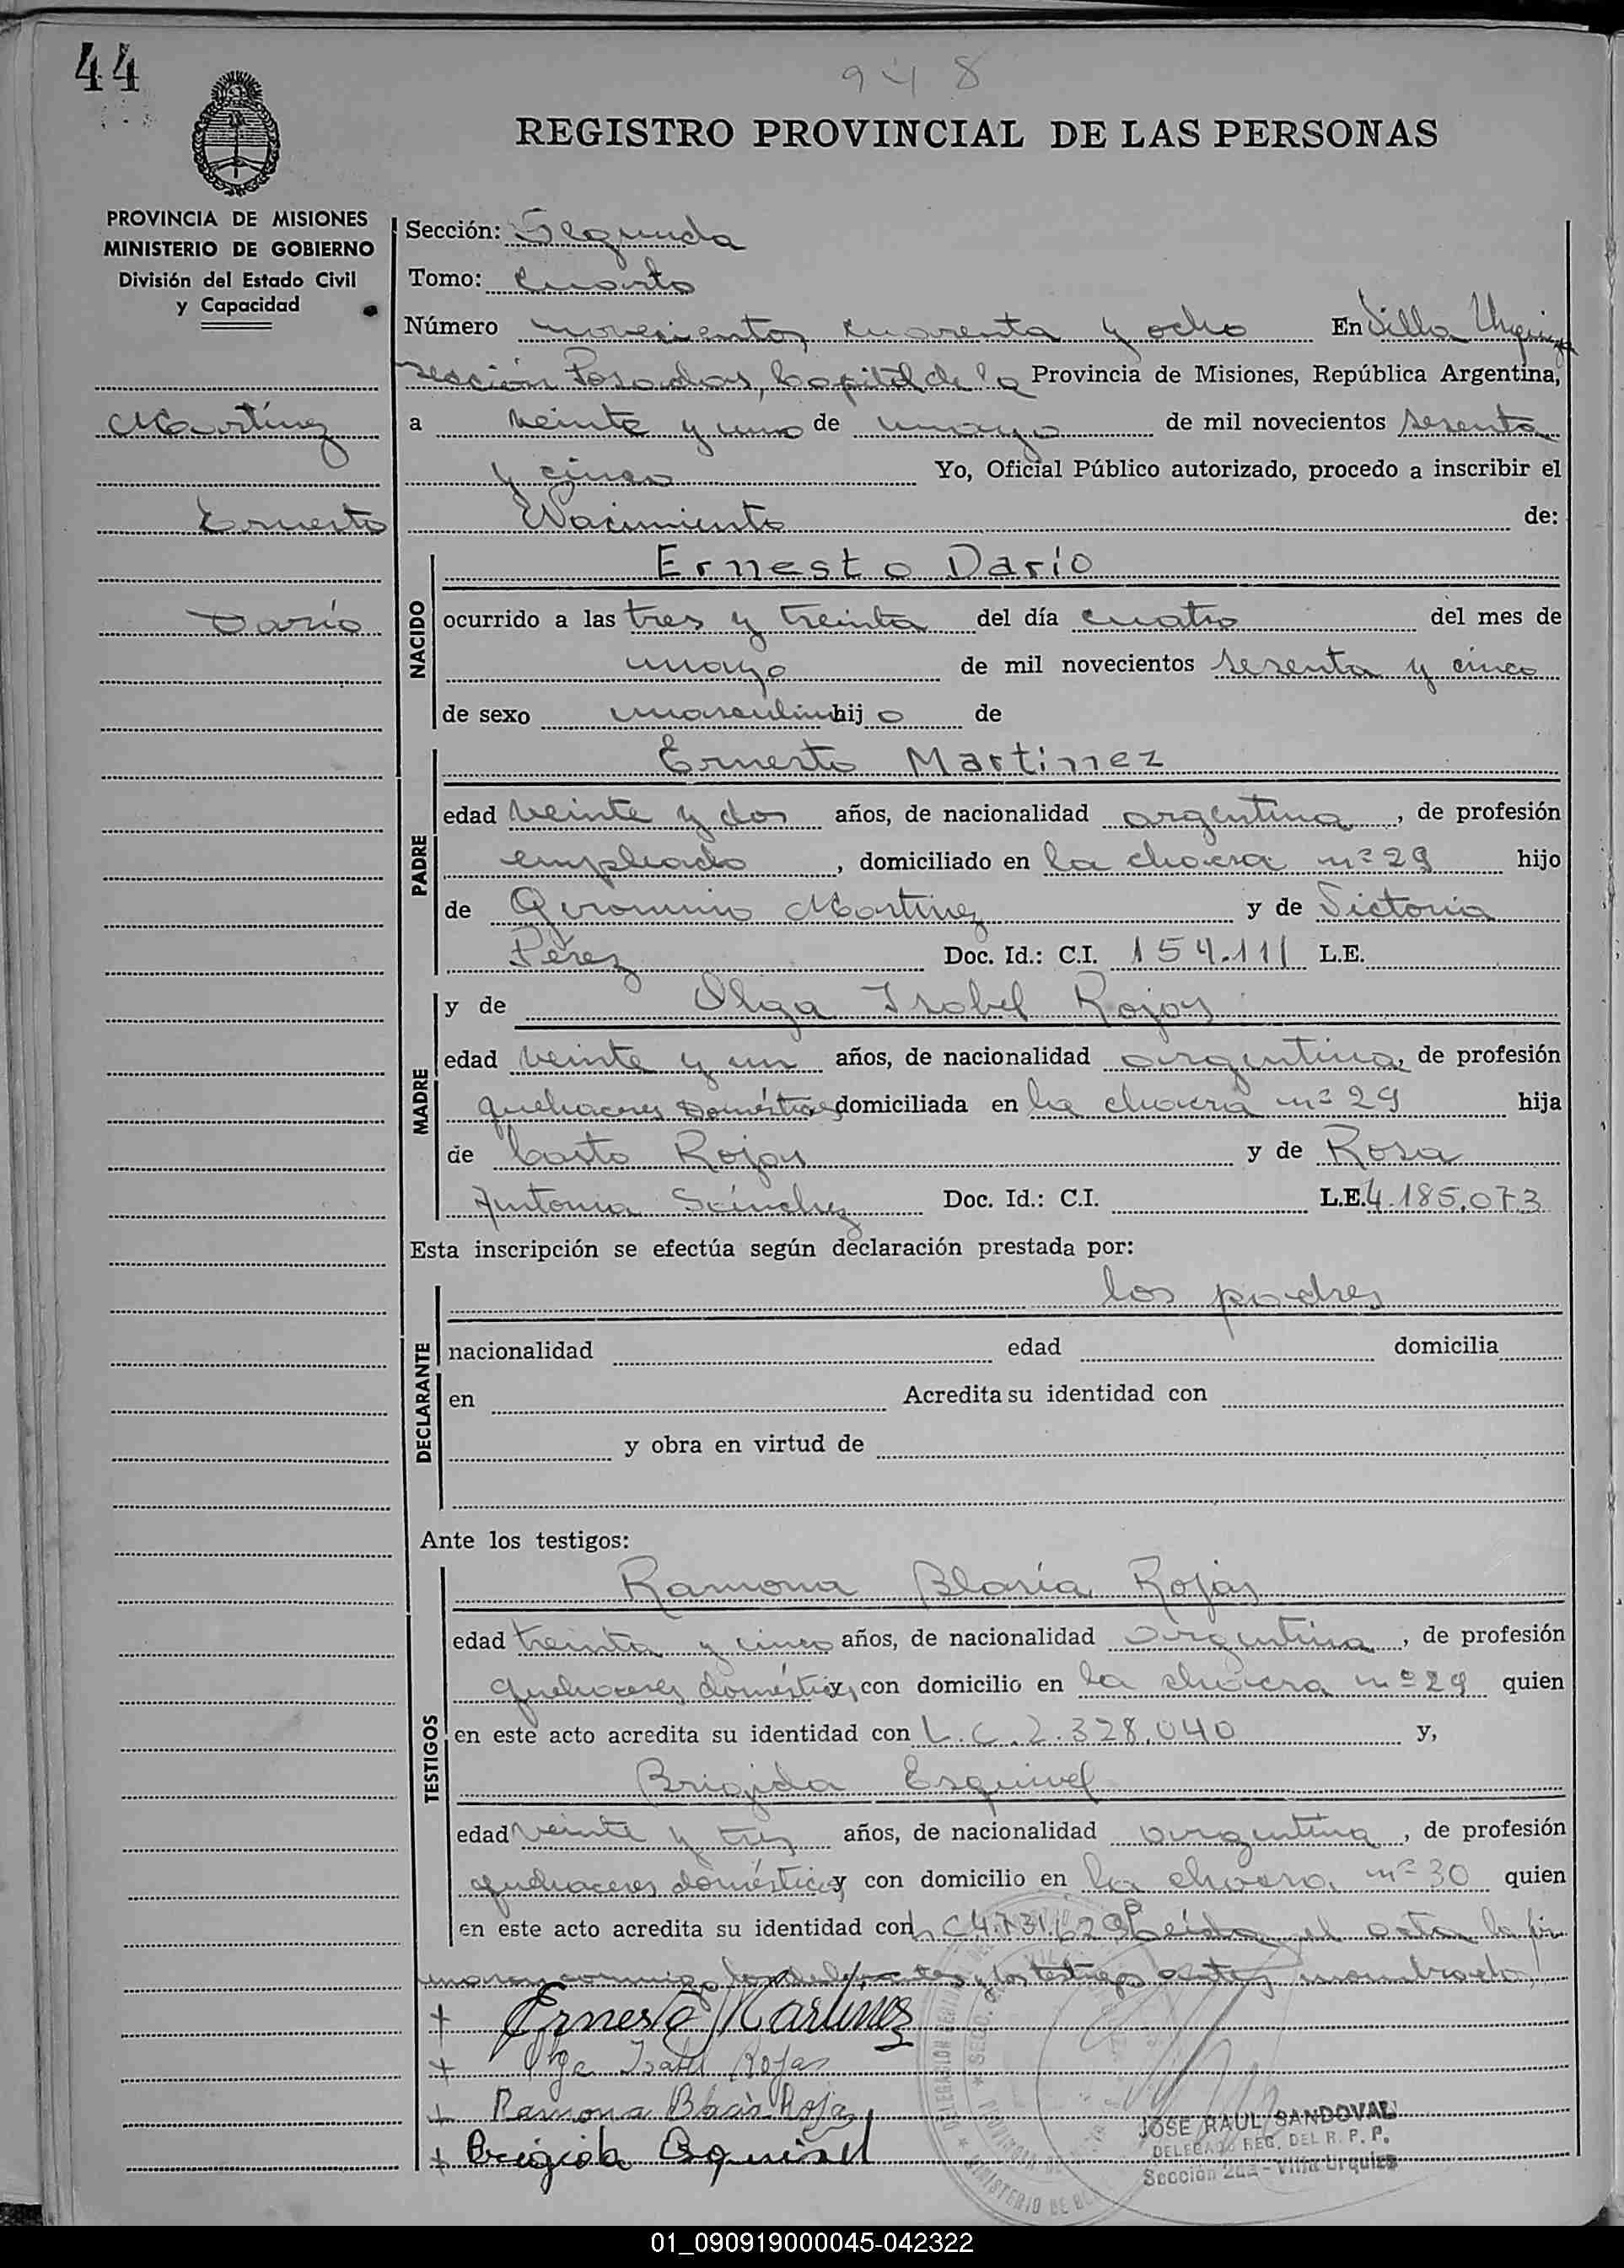 44
948
REGISTRO PROVINCIAL DE LAS PERSONAS
PROVINCIA DE MISIONES
MINISTERIO DE GOBIERNO
División del Estado Civil
y Capacidad
Martínez
Ernesto
Darío
Sección: Segunda
Tomo: Cuarto
Número novecientos cuarenta y ocho En Villa Urquiza
sección Posadas, Capital de la Provincia de Misiones, República Argentina,
a veinte y uno de mayo de mil novecientos sesenta
y cinco Yo, Oficial Público autorizado, procedo a inscribir el
Nacimiento de:
NACIDO
Ernesto Darío
ocurrido a las tres y treinta del día cuatro del mes de
mayo de mil novecientos sesenta y cinco
de sexo masculino hijo de
PADRE
Ernesto Martinez
edad veinte y dos años, de nacionalidad argentina, de profesión
empleado, domiciliado en la chacra nº 29 hijo
de Geronimo Martinez y de Victoria
Pérez Doc. Id.: C.I. 154.111 L.E.
MADRE
y de Olga Isabel Rojas
edad veinte y un años, de nacionalidad argentina, de profesión
quehaceres domésticos domiciliada en la chacra nº 29 hija
de Casto Rojas y de Rosa
Antonia Sánchez Doc. Id.: C.I. L.E. 4.185.073
Esta inscripción se efectúa según declaración prestada por:
DECLARANTE
los padres
nacionalidad edad domicilia
en Acredita su identidad con
y obra en virtud de
Ante los testigos:
TESTIGOS
Ramona Blasia Rojas
edad treinta y cinco años, de nacionalidad argentina, de profesión
quehaceres domésticos, con domicilio en la chacra nº 29 quien
en este acto acredita su identidad con L.C. 2.328.040 y,
Brigida Esquivel
edad veinte y tres años, de nacionalidad argentina, de profesión
quehaceres domésticos y con domicilio en la chacra nº 30 quien
en este acto acredita su identidad con L C 4.731.629 Leída el acta la fir
man conmigo los declarantes y los testigos antes nombrados
+ Ernesto Martinez
+ Olga Isabel Rojas
+ Ramona Blasia Rojas
+ Brigida Esquivel
JOSE RAUL SANDOVAL
DELEGADO REG. DEL R. P. P.
Sección 2da - Villa Urquiza
01_090919000045-042322